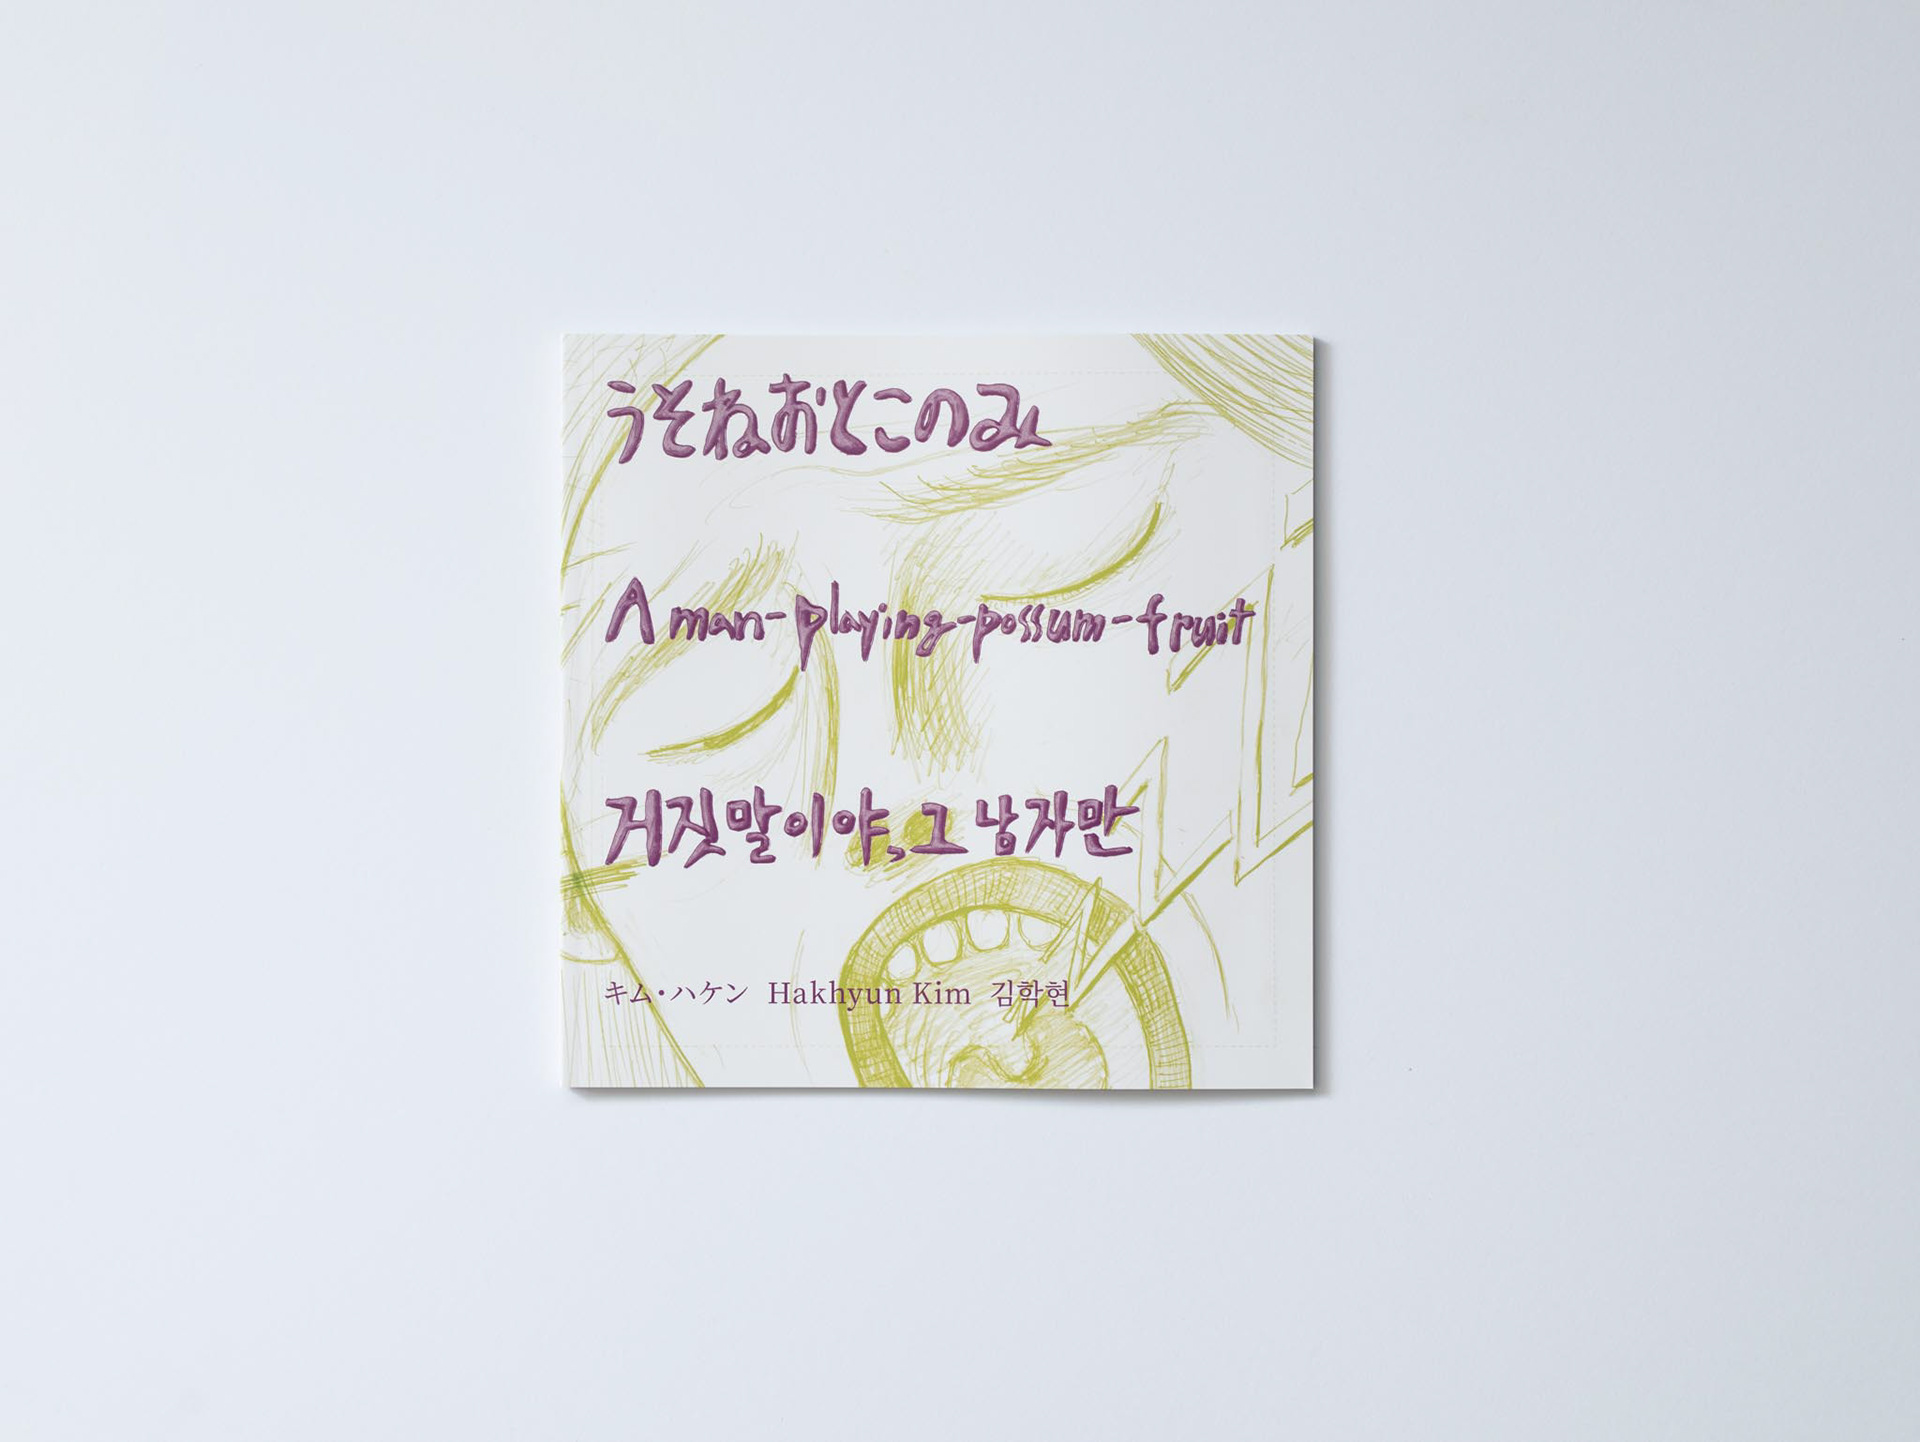 うそねおとこのみ
A man-playing-possum-fruit
거짓말이야, 그 남자만
キム・ハケン Hakhyun Kim 김학현